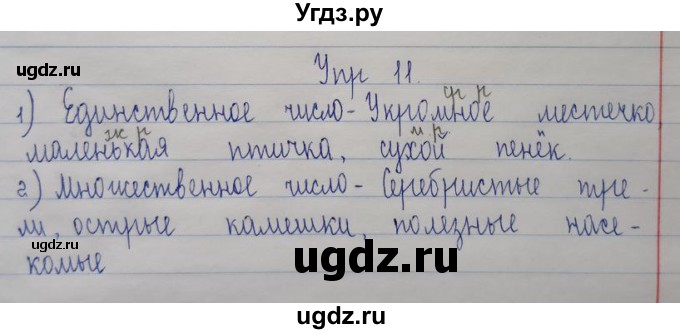 Угдз.ру
ugdz.ru
ugdz.ru
Упр 11.
ср р
1) Единственное число - Укромное местечко,
ж р
м р
маленькая птичка, сухой пенёк.
ugdz.ru
2) Множественное число - Серебристые тре-
ли, острые камешки, полезные насе-
ugdz.ru
комые
ugdz.ru
ugdz.ru
ugdz.ru